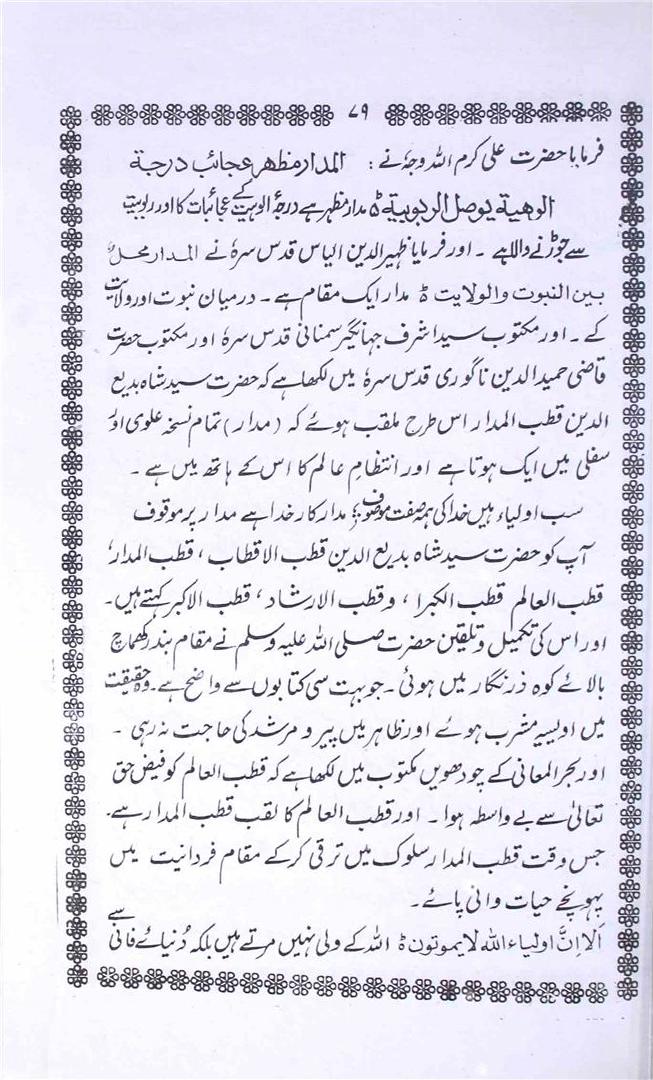 ۷۹
فرمایا حضرت علی کرم اللہ وجہٗ نے : المدار مظہر عجائب درجۃ
الوہیۃ یوصل الربوبیۃ ۵ مدار مظہر ہے درجۂ الوہیت کے عجائبات کا اور ربوبیت
سے جوڑنے والا ہے ۔ اور فرمایا ظہیر الدین الیاس قدس سرہٗ نے المدار محلٌ
بین النبوت والولایت ۵ مدار ایک مقام ہے ۔ درمیان نبوت اور ولایت
کے ۔ اور مکتوب سید اشرف جہانگیر سمنانی قدس سرہٗ اور مکتوب حضرت
قاضی حمید الدین ناگوری قدس سرہٗ میں لکھا ہے کہ حضرت سید شاہ بدیع
الدین قطب المدار اس طرح ملقب ہوئے کہ (مدار) تمام نسخہ علوی اور
سفلی میں ایک ہوتا ہے اور انتظامِ عالم کا اس کے ہاتھ میں ہے ۔
سب اولیاء ہیں خدا کی ہمہ صفت موصوف ؛ مدار کار خدا ہے مدار پر موقوف
آپ کو حضرت سید شاہ بدیع الدین قطب الاقطاب ، قطب المدار ،
قطب العالم قطب الکبرا ، وقطب الارشاد ، قطب الاکبر کہتے ہیں۔
اور اس کی تکمیل و تلقین حضرت صلی اللہ علیہ وسلم نے مقام بندر کھماچ
بالائے کوہ ذرنگار میں ہوئی ۔ جو بہت سی کتابوں سے واضح ہے ۔ وہ حقیقت
میں اویسیہ مشرب ہوئے اور ظاہر میں پیر و مرشد کی حاجت نہ رہی ۔
اور بحر المعانی کے چودھویں مکتوب میں لکھا ہے کہ قطب العالم کو فیض حق
تعالیٰ سے بے واسطہ ہوا ۔ اور قطب العالم کا لقب قطب المدار ہے۔
جس وقت قطب المدار سلوک میں ترقی کرکے مقام فردانیت میں
پہونچے حیات وانی پائے ۔
اَلا اِنَّ اولیاء اللہ لا یموتون ۵ اللہ کے ولی نہیں مرتے ہیں بلکہ دُنیائے فانی سے